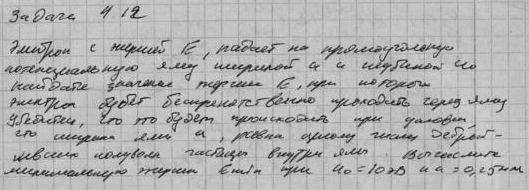 Задача 4 12
Электрон с энергией E, падает на прямоугольную
потенциальную яму шириной a и глубиной U0
найдите значение энергии E, при которой
электрон будет беспрепятственно проходить через яму
Убедитесь, что это будет происходить при условии
что ширина ямы a, равна целому числу Деброй-
левских полуволн частицы внутри ямы. Вычислите
минимальную энергию Emin при U0 = 10 эВ и a = 0,25 нм